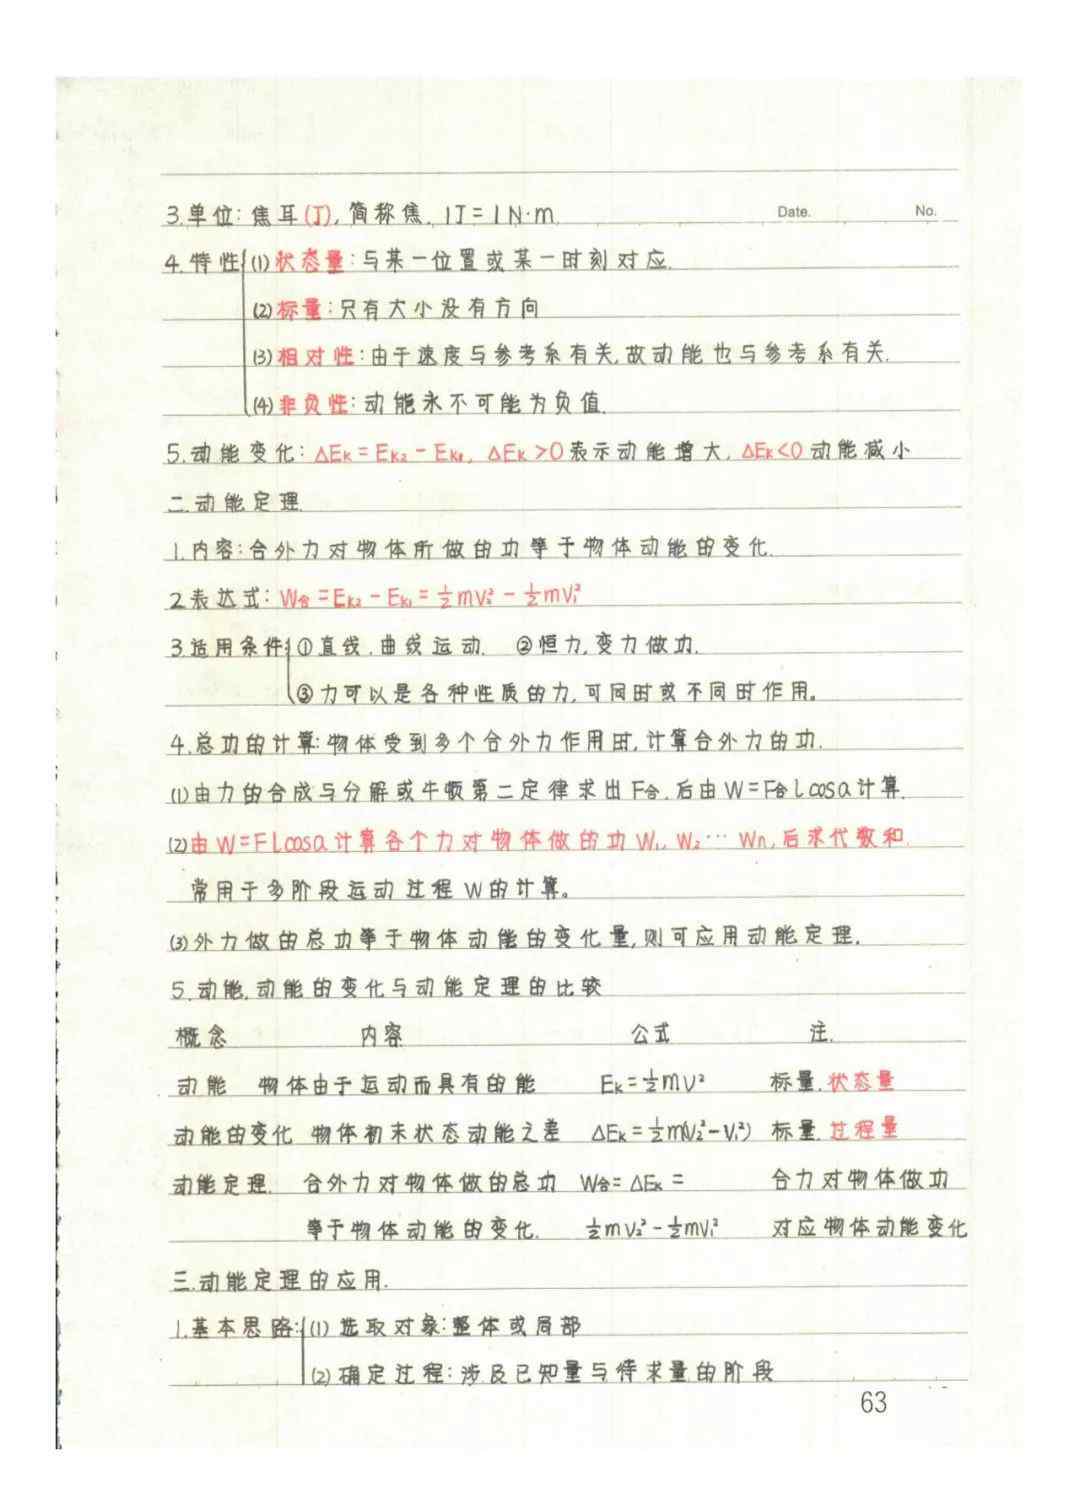 3.单位:焦耳(J),简称焦.1J=1N·m Date. No.
4.特性(1)状态量:与某一位置或某一时刻对应.
(2)标量:只有大小没有方向
(3)相对性:由于速度与参考系有关,故动能也与参考系有关.
(4)非负性:动能永不可能为负值.
5.动能变化:ΔEk=Ek₂-Ek₁,ΔEk>0表示动能增大,ΔEk<0动能减小
二.动能定理
1.内容:合外力对物体所做的功等于物体动能的变化.
2.表达式:W合=Ek₂-Ek₁=½mv₂²-½mv₁²
3.适用条件①直线.曲线运动. ②恒力,变力做功.
③力可以是各种性质的力,可同时或不同时作用。
4.总功的计算:物体受到多个合外力作用时,计算合外力的功.
(1)由力的合成与分解或牛顿第二定律求出F合.后由W=F合Lcosα计算.
(2)由W=FLcosα计算各个力对物体做的功W₁,W₂…Wn,后求代数和.
常用于多阶段运动过程W的计算。
(3)外力做的总功等于物体动能的变化量,则可应用动能定理.
5.动能.动能的变化与动能定理的比较
概念 内容 公式 注.
动能 物体由于运动而具有的能 Ek=½mv² 标量.状态量
动能的变化 物体初末状态动能之差 ΔEk=½m(v₂²-v₁²) 标量.过程量
动能定理. 合外力对物体做的总功 W合=ΔEk= 合力对物体做功
等于物体动能的变化. ½mv₂²-½mv₁² 对应物体动能变化
三.动能定理的应用.
1.基本思路:(1)选取对象:整体或局部
(2)确定过程:涉及已知量与待求量的阶段
63